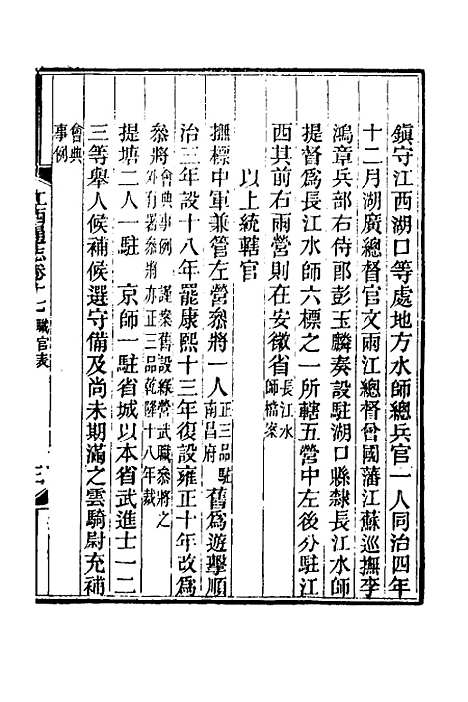 鎮守江西湖口等處地方水師總兵官一人同治四年
十二月湖廣總督官文兩江總督曾國藩江蘇巡撫李
鴻章兵部右侍郎彭玉麟奏設駐湖口縣隸長江水師
提督爲長江水師六標之一所轄五營中左後分駐江
西其前右兩營則在安徽省長江水師檔案
以上統轄官
撫標中軍兼管左營叅將一人正三品駐南昌府舊爲遊擊順
治三年設十八年罷康熙十三年復設雍正十年改爲
叅將會典事例謹案舊設綠營武職叅將之外有署叅將亦正三品乾隆十八年裁
提塘二人一駐 京師一駐省城以本省武進士一二
三等舉人候補候選守備及尚未期滿之雲騎尉充補
會典事例
江西通志卷十七職官表